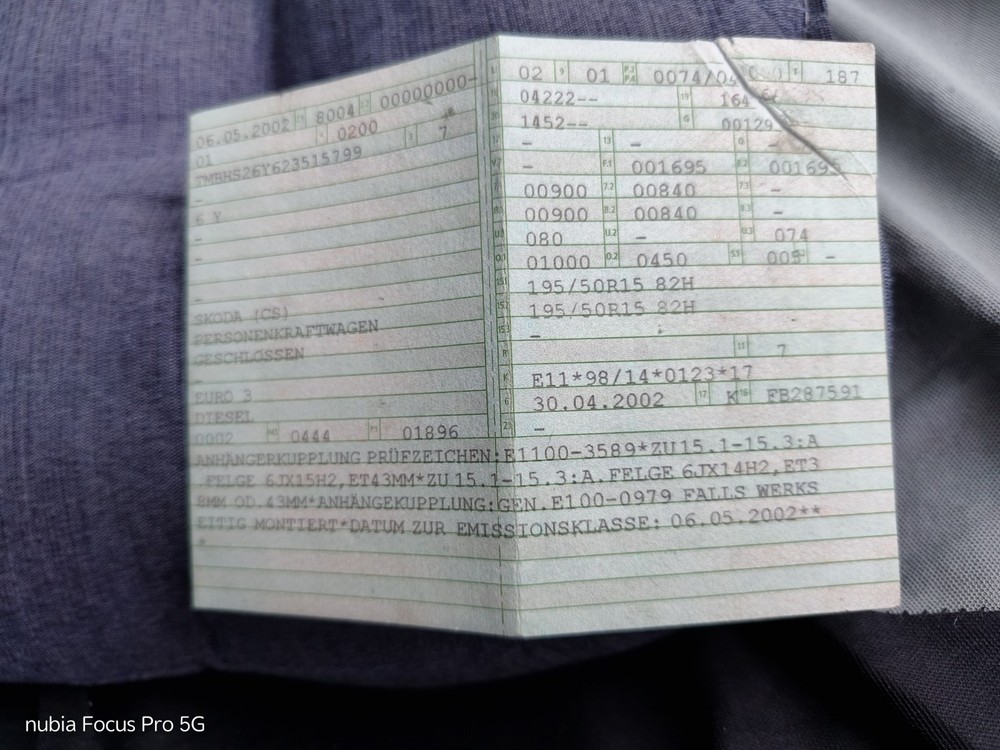 06.05.2002 8004 00000000-
01 0200 7
TMBHS26Y623515799
-
6 Y
-
-
-
SKODA (CS)
PERSONENKRAFTWAGEN
GESCHLOSSEN
-
EURO 3
DIESEL
0002 0444 01896
02 9 01 0074/04 187
04222-- 164
1452-- 00129
- 13 - -
- F.1 001695 F.2 001695
00900 7.2 00840 7.3 -
00900 8.2 00840 8.3 -
080 U.2 - U.3 074
01000 O.2 0450 S.1 005 -
15.1 195/50R15 82H
15.2 195/50R15 82H
15.3 -
R 11 7
K E11*98/14*0123*17
6 30.04.2002 17 K 16 FB287591
21 -
ANHÄNGERKUPPLUNG PRÜFZEICHEN:E1100-3589*ZU15.1-15.3:A
.FELGE 6JX15H2,ET43MM*ZU 15.1-15.3:A.FELGE 6JX14H2,ET3
8MM OD.43MM*ANHÄNGEKUPPLUNG:GEN.E100-0979 FALLS WERKS
EITIG MONTIERT*DATUM ZUR EMISSIONSKLASSE: 06.05.2002**
-
nubia Focus Pro 5G